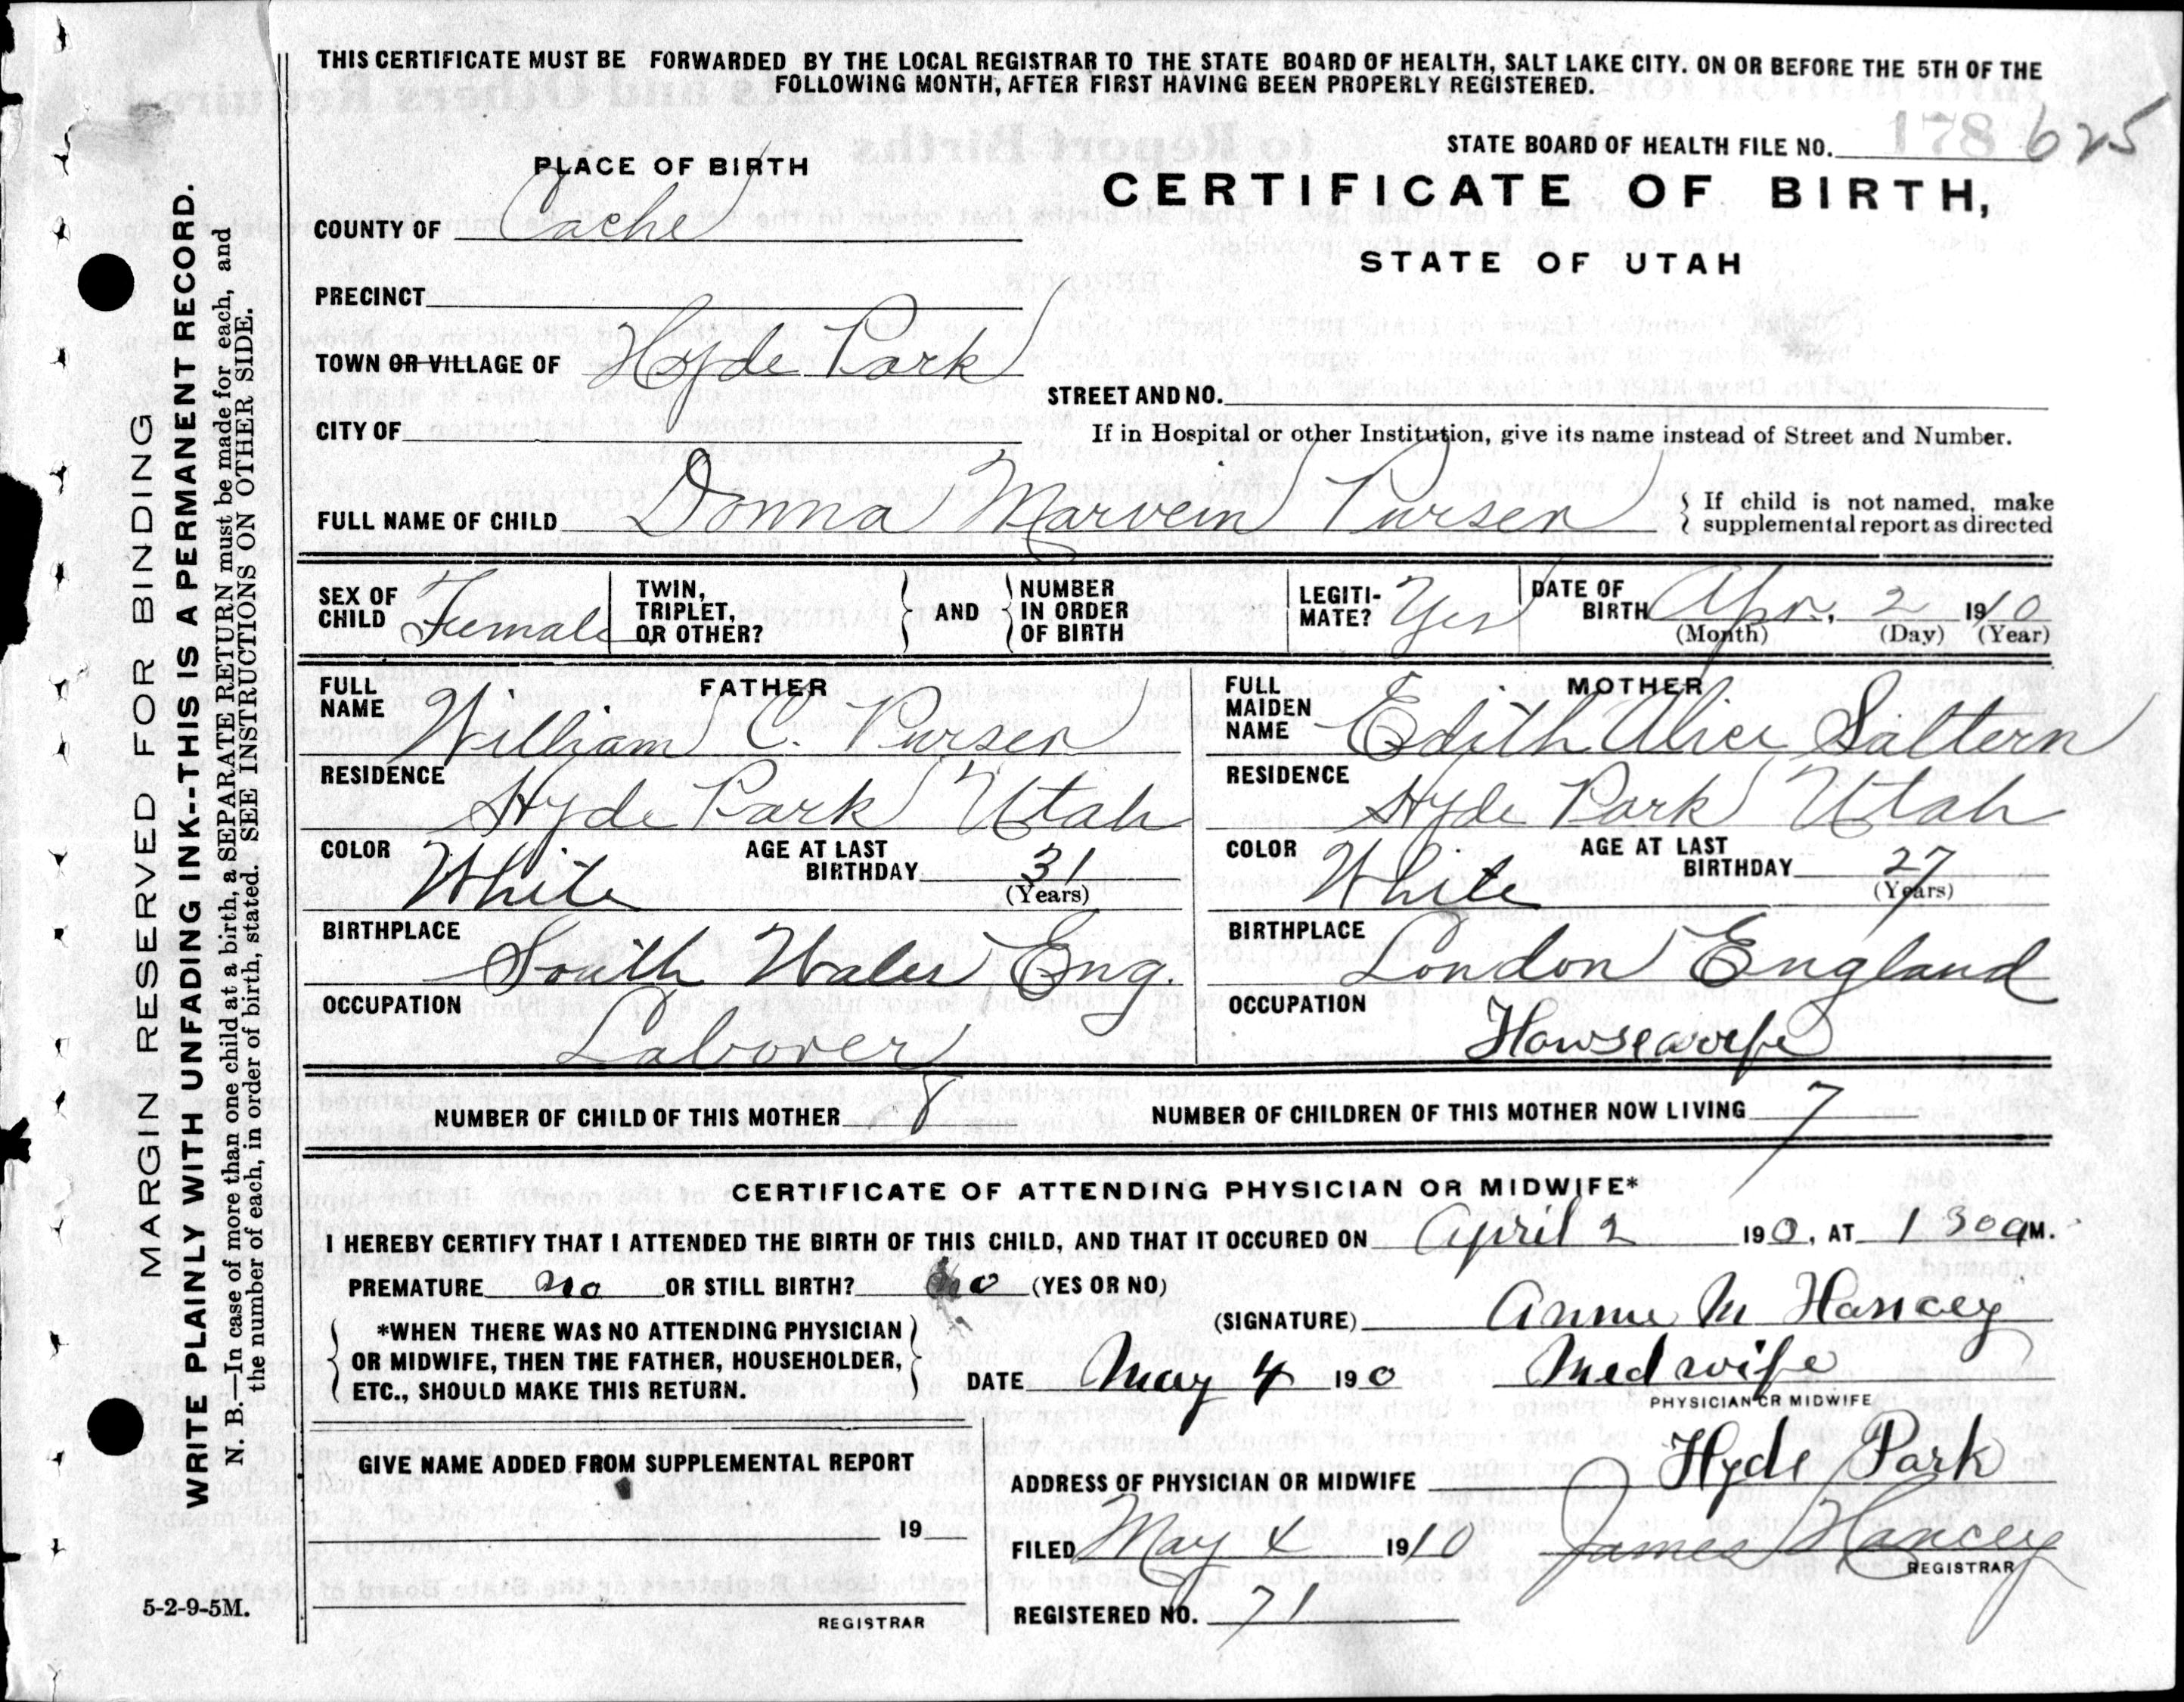 THIS CERTIFICATE MUST BE FORWARDED BY THE LOCAL REGISTRAR TO THE STATE BOARD OF HEALTH, SALT LAKE CITY. ON OR BEFORE THE 5TH OF THE
FOLLOWING MONTH, AFTER FIRST HAVING BEEN PROPERLY REGISTERED.
STATE BOARD OF HEALTH FILE NO. 178 625
PLACE OF BIRTH
CERTIFICATE OF BIRTH,
COUNTY OF Cache
STATE OF UTAH
PRECINCT
TOWN OR VILLAGE OF Hyde Park
STREET AND NO.
CITY OF
If in Hospital or other Institution, give its name instead of Street and Number.
FULL NAME OF CHILD Donna Marvein Purser
{ If child is not named, make
supplemental report as directed
SEX OF CHILD Female
TWIN, TRIPLET, OR OTHER?
} AND {
NUMBER IN ORDER OF BIRTH
LEGITI-MATE? Yes
DATE OF BIRTH Apr. 2 1910
(Month) (Day) (Year)
FATHER
FULL NAME William C. Purser
RESIDENCE
Hyde Park Utah
COLOR White
AGE AT LAST BIRTHDAY 31
(Years)
BIRTHPLACE
South Wales Eng.
OCCUPATION
Laborer
MOTHER
FULL MAIDEN NAME Edith Alice Saltern
RESIDENCE
Hyde Park Utah
COLOR White
AGE AT LAST BIRTHDAY 27
(Years)
BIRTHPLACE
London England
OCCUPATION
Howsewife
NUMBER OF CHILD OF THIS MOTHER 8
NUMBER OF CHILDREN OF THIS MOTHER NOW LIVING 7
CERTIFICATE OF ATTENDING PHYSICIAN OR MIDWIFE*
I HEREBY CERTIFY THAT I ATTENDED THE BIRTH OF THIS CHILD, AND THAT IT OCCURED ON April 2 190, AT 1 30 a M.
PREMATURE no OR STILL BIRTH? no (YES OR NO)
(SIGNATURE) Annie M Hancey
*WHEN THERE WAS NO ATTENDING PHYSICIAN
OR MIDWIFE, THEN THE FATHER, HOUSEHOLDER,
ETC., SHOULD MAKE THIS RETURN.
DATE May 4 190 Medwife
PHYSICIAN OR MIDWIFE
GIVE NAME ADDED FROM SUPPLEMENTAL REPORT
19
REGISTRAR
ADDRESS OF PHYSICIAN OR MIDWIFE Hyde Park
FILED May 4 1910 James Hancey
REGISTRAR
REGISTERED NO. 71
MARGIN RESERVED FOR BINDING
WRITE PLAINLY WITH UNFADING INK--THIS IS A PERMANENT RECORD.
N. B.—In case of more than one child at a birth, a SEPARATE RETURN must be made for each, and
the number of each, in order of birth, stated. SEE INSTRUCTIONS ON OTHER SIDE.
5-2-9-5M.